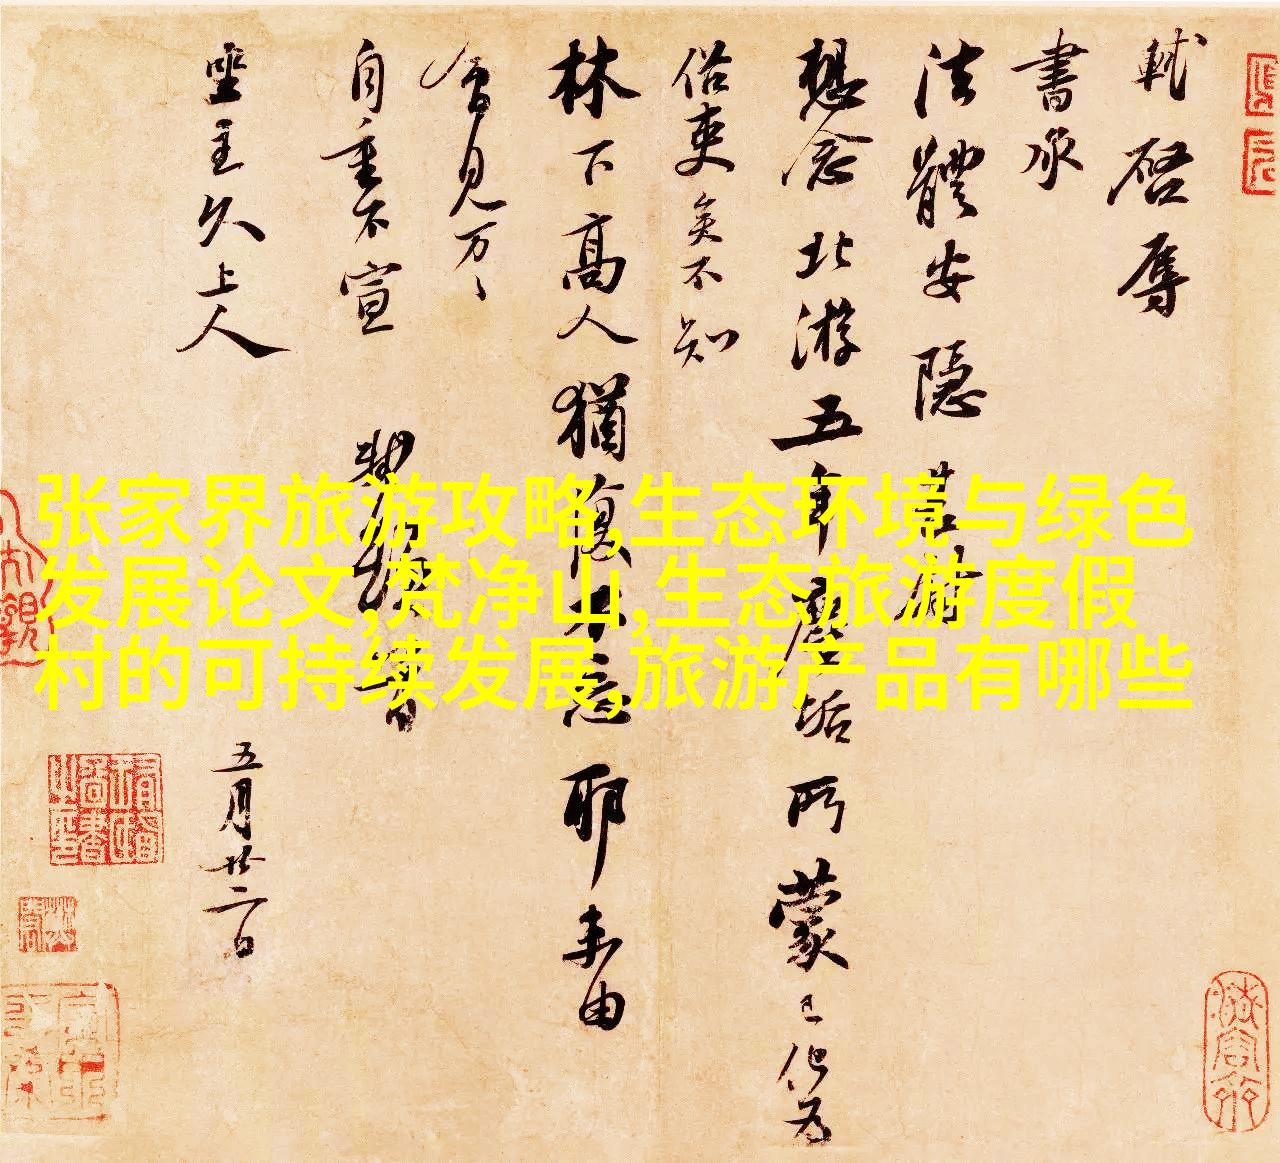 軾啓辱
書承
法體安隱甚慰
想念北游五年塵垢所蒙已化為
俗吏矣不知
林下高人猶復不忘耶未由
會見万〻
自重不宣
軾頓首
坐主久上人
五月廿二日
张家界旅游攻略,生态环境与绿色
发展论文,梵净山,生态旅游度假
村的可持续发展,旅游产品有哪些